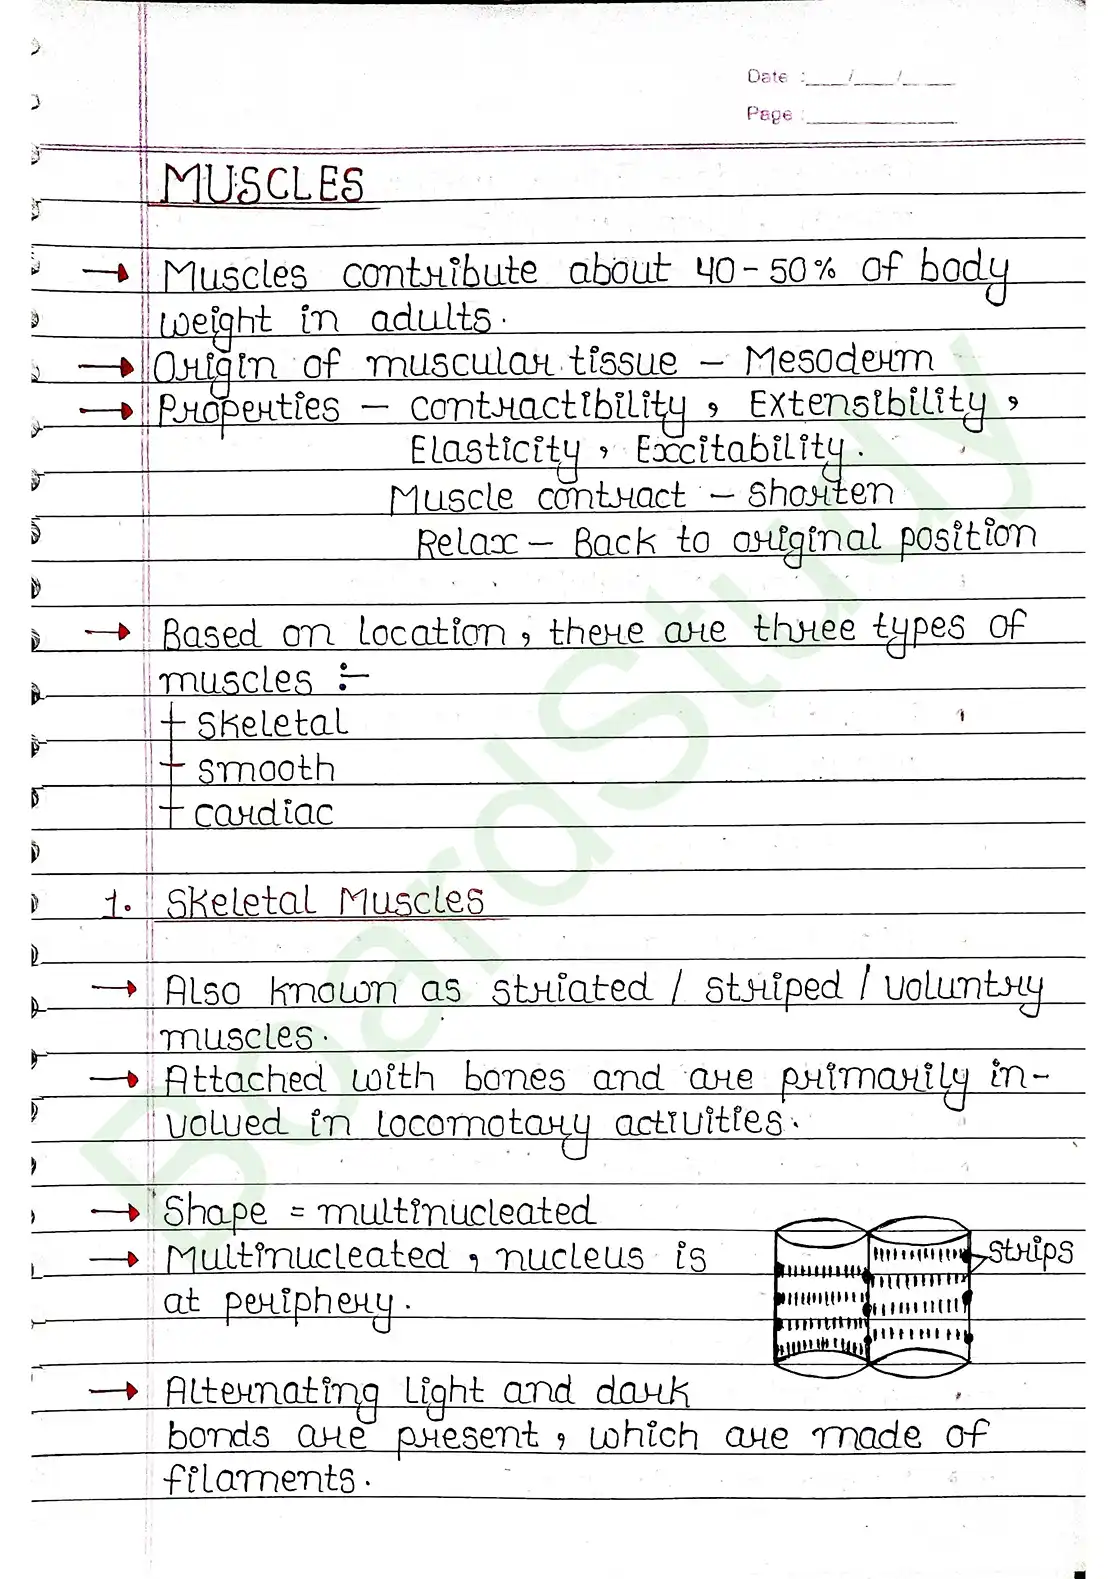 Date :___/___/____
Page :____________
MUSCLES
→ Muscles contribute about 40-50% of body
weight in adults.
→ Origin of muscular tissue – Mesoderm
→ Properties – contractibility, Extensibility,
Elasticity, Excitability.
Muscle contract – shorten
Relax – Back to original position
→ Based on location, there are three types of
muscles :-
skeletal
smooth
cardiac
1. Skeletal Muscles
→ Also known as striated / striped / voluntry
muscles.
→ Attached with bones and are primarily in-
volved in locomotary activities.
→ Shape = multinucleated
→ Multinucleated, nucleus is
strips
at periphery.
→ Alternating light and dark
bonds are present, which are made of
filaments.
BoardStudy